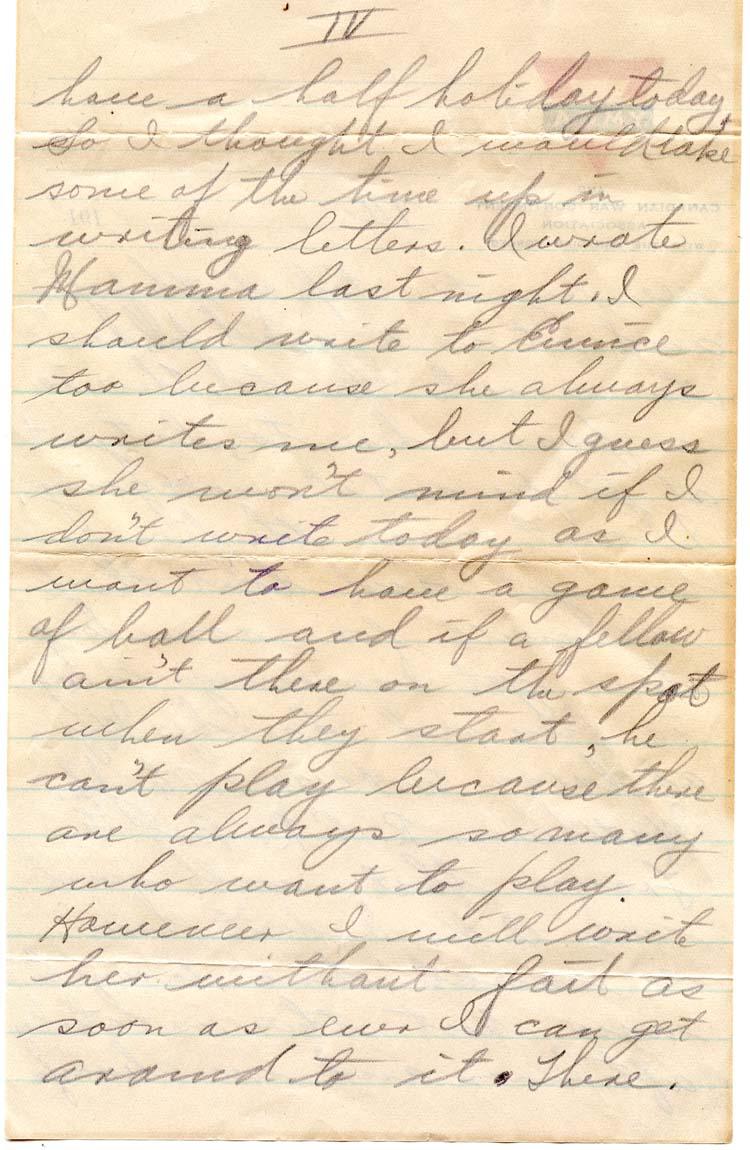 IV
have a half holiday today,
So I thought I would take
some of the time up in
writing letters. I wrote
Mamma last night. I
should write to Eunice
too because she always
writes me, but I guess
she won't mind if I
don't write today as I
want to have a game
of ball and if a fellow
ain't there on the spot
when they start, he
can't play because there
are always so many
who want to play.
However I will write
her without fail as
soon as ever I can get
around to it. There.